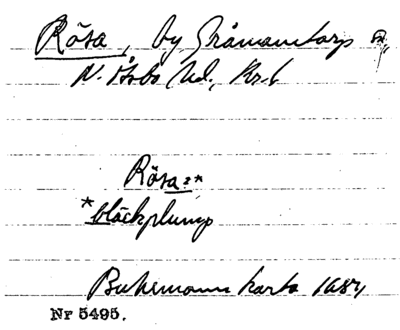 Rösa, by Gråmanstorp sn,
N. Åsbo hd., Kr. l
Rösa:*
*bläckplump
Buhrmanns karta 1684
Nr 5495.